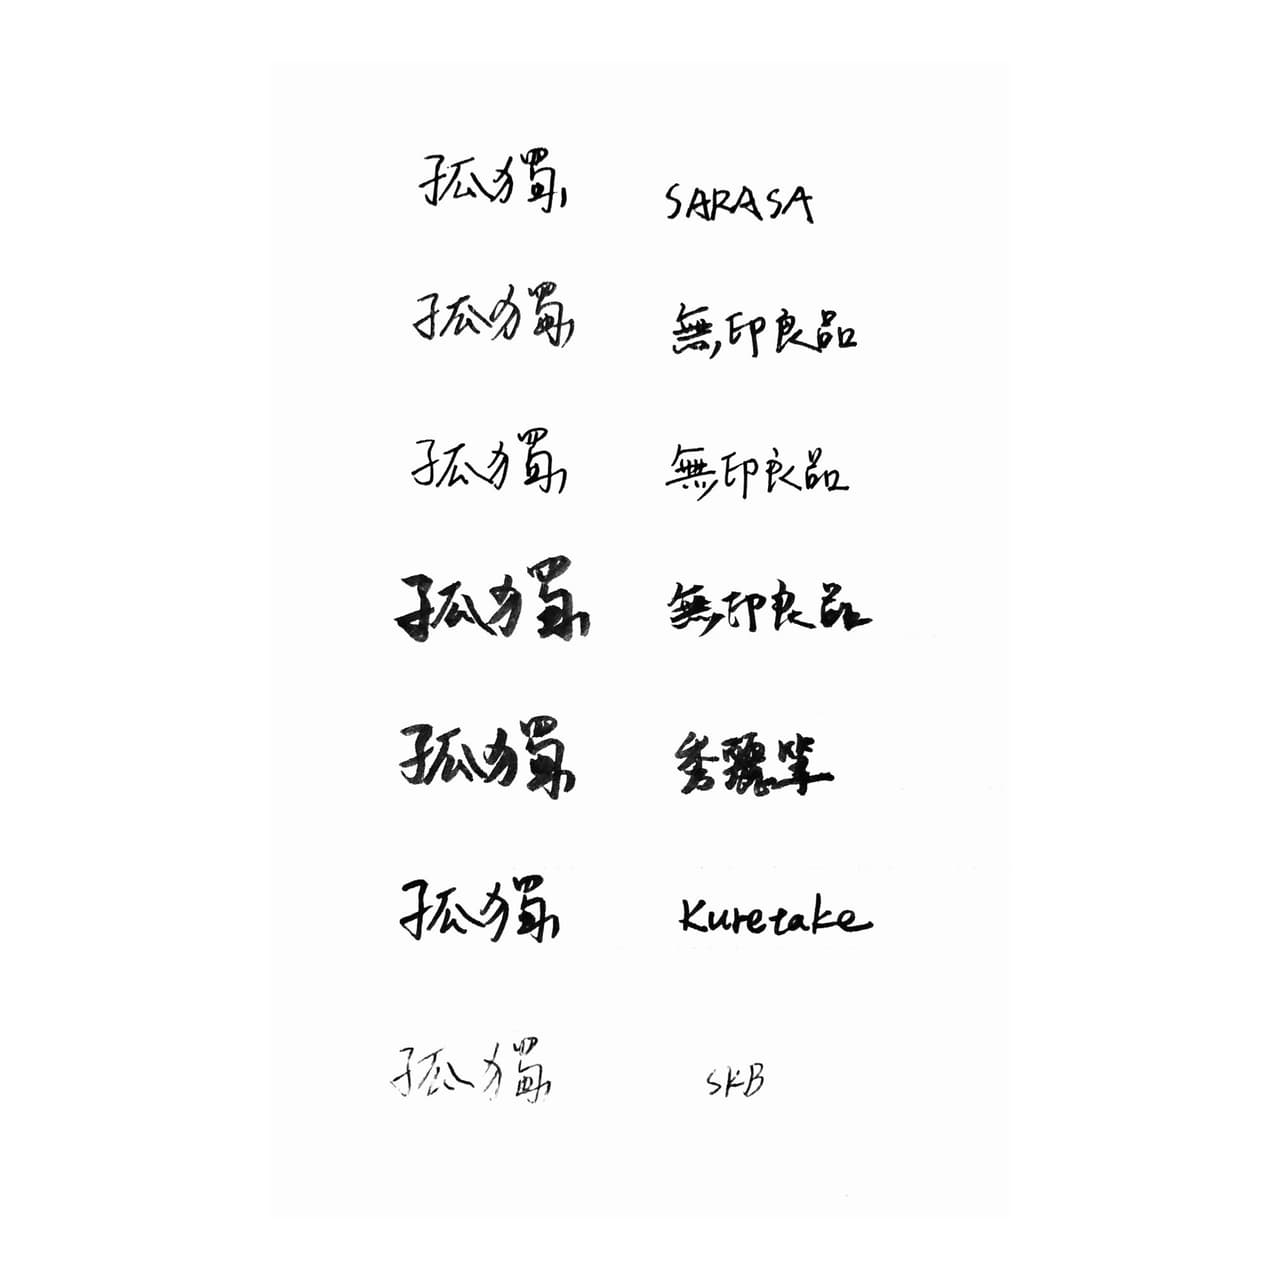 孤獨 SARASA
孤獨 無印良品
孤獨 無印良品
孤獨 無印良品
孤獨 秀麗筆
孤獨 Kuretake
孤獨 SKB